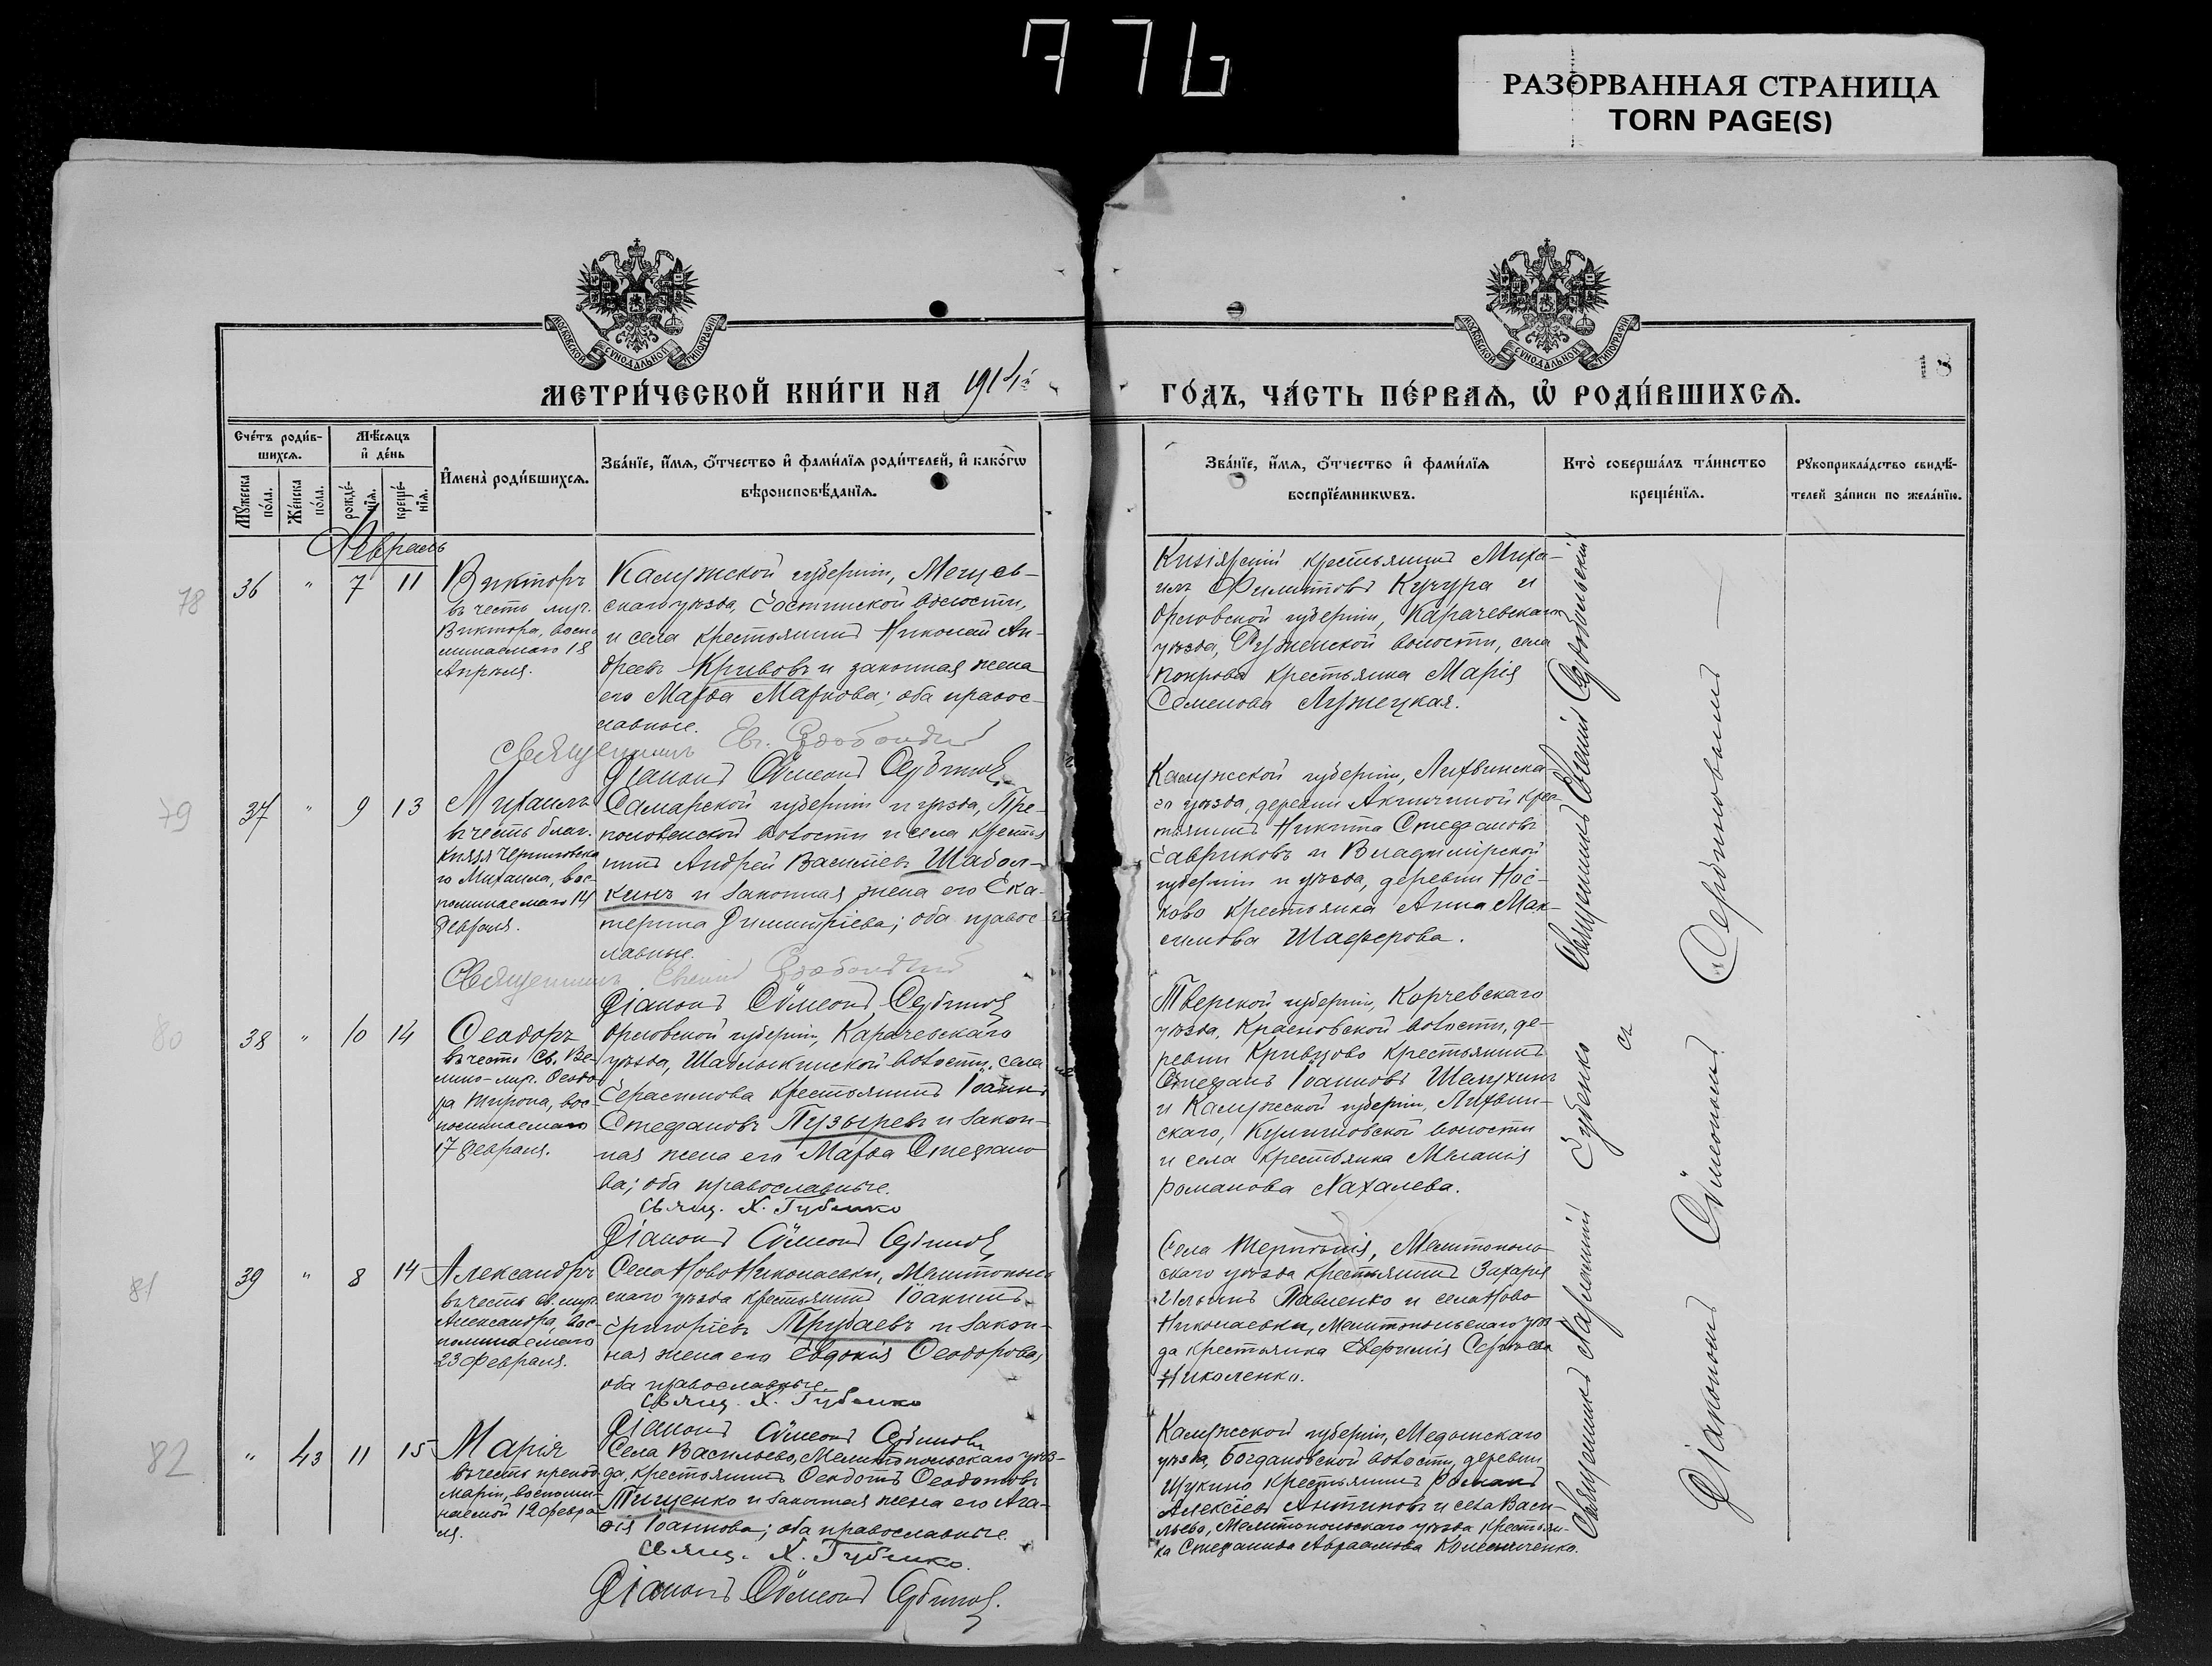 776
РАЗОРВАННАЯ СТРАНИЦА
TORN PAGE(S)
МОСКОВСКОЙ СУНОДАЛЬНОЙ ТИПОГРАФІИ
МОСКОВСКОЙ СУНОДАЛЬНОЙ ТИПОГРАФІИ
18
МЕТРИ́ЧЕСКОЙ КНИ́ГИ НА 1914й
ГО́ДЪ, ЧА́СТЬ ПЕ́РВАЯ, Ѽ РОДИ́ВШИХСЯ.
Сче́тъ роди́в-
шихся.
Мѣ́сяцъ
и҆ де́нь
Мꙋжеска по́ла.
Же́нска по́ла.
рожде́-
нїя.
креще́-
нїя.
И҆мена̀ роди́вшихся.
Зва́нїе, и҆́мя, ѻ҆́тчество и҆ фами́лїя роди́телей, и҆ како́гѡ
вѣроисповѣ́данїя.
Зва́нїе, и҆́мя, ѻ҆́тчество и҆ фами́лїя
воспрїе́мникѡвъ.
Кто̀ соверша́лъ та́инство
креще́нїя.
Рꙋкоприкла́дство свидѣ́-
телей за́писи по жела́нїю.
Февраль
78
36 " 7 11
Викторъ
въ честь муч.
Виктора, воспо
минаемаго 18
Апрѣля.
Калужской губерніи, Мещев-
скаго уѣзда, волости,
и села крестьянинъ Николай Ан-
дреевъ Кривовъ и законная жена
его Марѳа Маркова; оба правос-
лавные.
Священникъ Ев.
Діаконъ Сѵмеонъ Сербиновъ
крестьянинъ Миха-
илъ Филипповъ Кучура и
Орловской губерніи, Карачевскаго
уѣзда, волости, села
Покрова крестьянка Марія
Семенова Лужецкая.
79
37 " 9 13
Михаилъ
въ честь благ.
Князя Черниговска
го Михаила, вос-
поминаемаго 14
Февраля.
Самарской губерніи и уѣзда, Пре-
половенской волости и села крестья
нинъ Андрей Васильевъ Шабол-
кинъ и законная жена его Ека-
терина Димитріева; оба правос-
лавные.
Священникъ Евгеній
Діаконъ Сѵмеонъ Сербиновъ
Калужской губерніи, Лихвинска-
го уѣзда, деревни крес-
тьянинъ Никита Стефановъ
Гавриковъ и Владимірской
губерніи и уѣзда, деревни Нос-
ково крестьянка Анна Мак-
симова Шаферова.
80
38 " 10 14
Ѳеодоръ
въ честь Св. Ве-
лико-муч. Ѳеодо
ра Тирона, вос-
поминаемаго
17 Февраля.
Орловской губерніи, Карачевскаго
уѣзда, Шаблыкинской волости, села
Герасимова крестьянинъ Іоаннъ
Стефановъ Пузыревъ и закон-
ная жена его Марѳа Стефано
ва; оба православные.
Свящ. Х. Губенко
Діаконъ Сѵмеонъ Сербиновъ
Тверской губерніи, Корчевскаго
уѣзда, волости, де-
ревни Кривцово крестьянинъ
Стефанъ Іоанновъ Шапухинъ
и Калужской губерніи, Лихвин-
скаго, волости
и села крестьянка Меланія
Романова Лахалева.
81
39 " 8 14
Александръ
въ честь св. муч.
Александра, вос-
поминаемаго
23 Февраля.
Села НовоНиколаевки, Мелитополь
скаго уѣзда крестьянинъ Іоакимъ
Григоріевъ Трубаевъ и закон-
ная жена его Евдокія Ѳеодорова,
оба православные.
Свящ. Х. Губенко
Діаконъ Сѵмеонъ Сербиновъ
Села Терпѣнія, Мелитополь
скаго уѣзда крестьянинъ Захарія
Ильинъ Павленко и села Ново
Николаевки, Мелитопольскаго уѣз
да крестьянка Евфимія Сергѣева
Николенко.
82
" 43 11 15
Марія
въ честь препод.
Маріи, воспоми-
наемой 12 Февра
ля.
Села Васильево, Мелитопольскаго уѣз-
да, крестьянинъ Ѳеодотъ Ѳеодотовъ
Тищенко и законная жена его Ага-
ѳія Іоаннова; оба православные.
Свящ. Х. Губенко.
Діаконъ Сѵмеонъ Сербиновъ.
Калужской губерніи, Медынскаго
уѣзда, Богдановской волости, деревни
Щукино крестьянинъ Романъ
Алексіевъ Антиповъ и села Васи-
льево, Мелитопольскаго уѣзда крестьян-
ка Стефанида Авраамова Коленниченко.
Священникъ Харлампій Губенко Священникъ Евгеній
съ
Діакономъ Сѵмеономъ Сербиновымъ